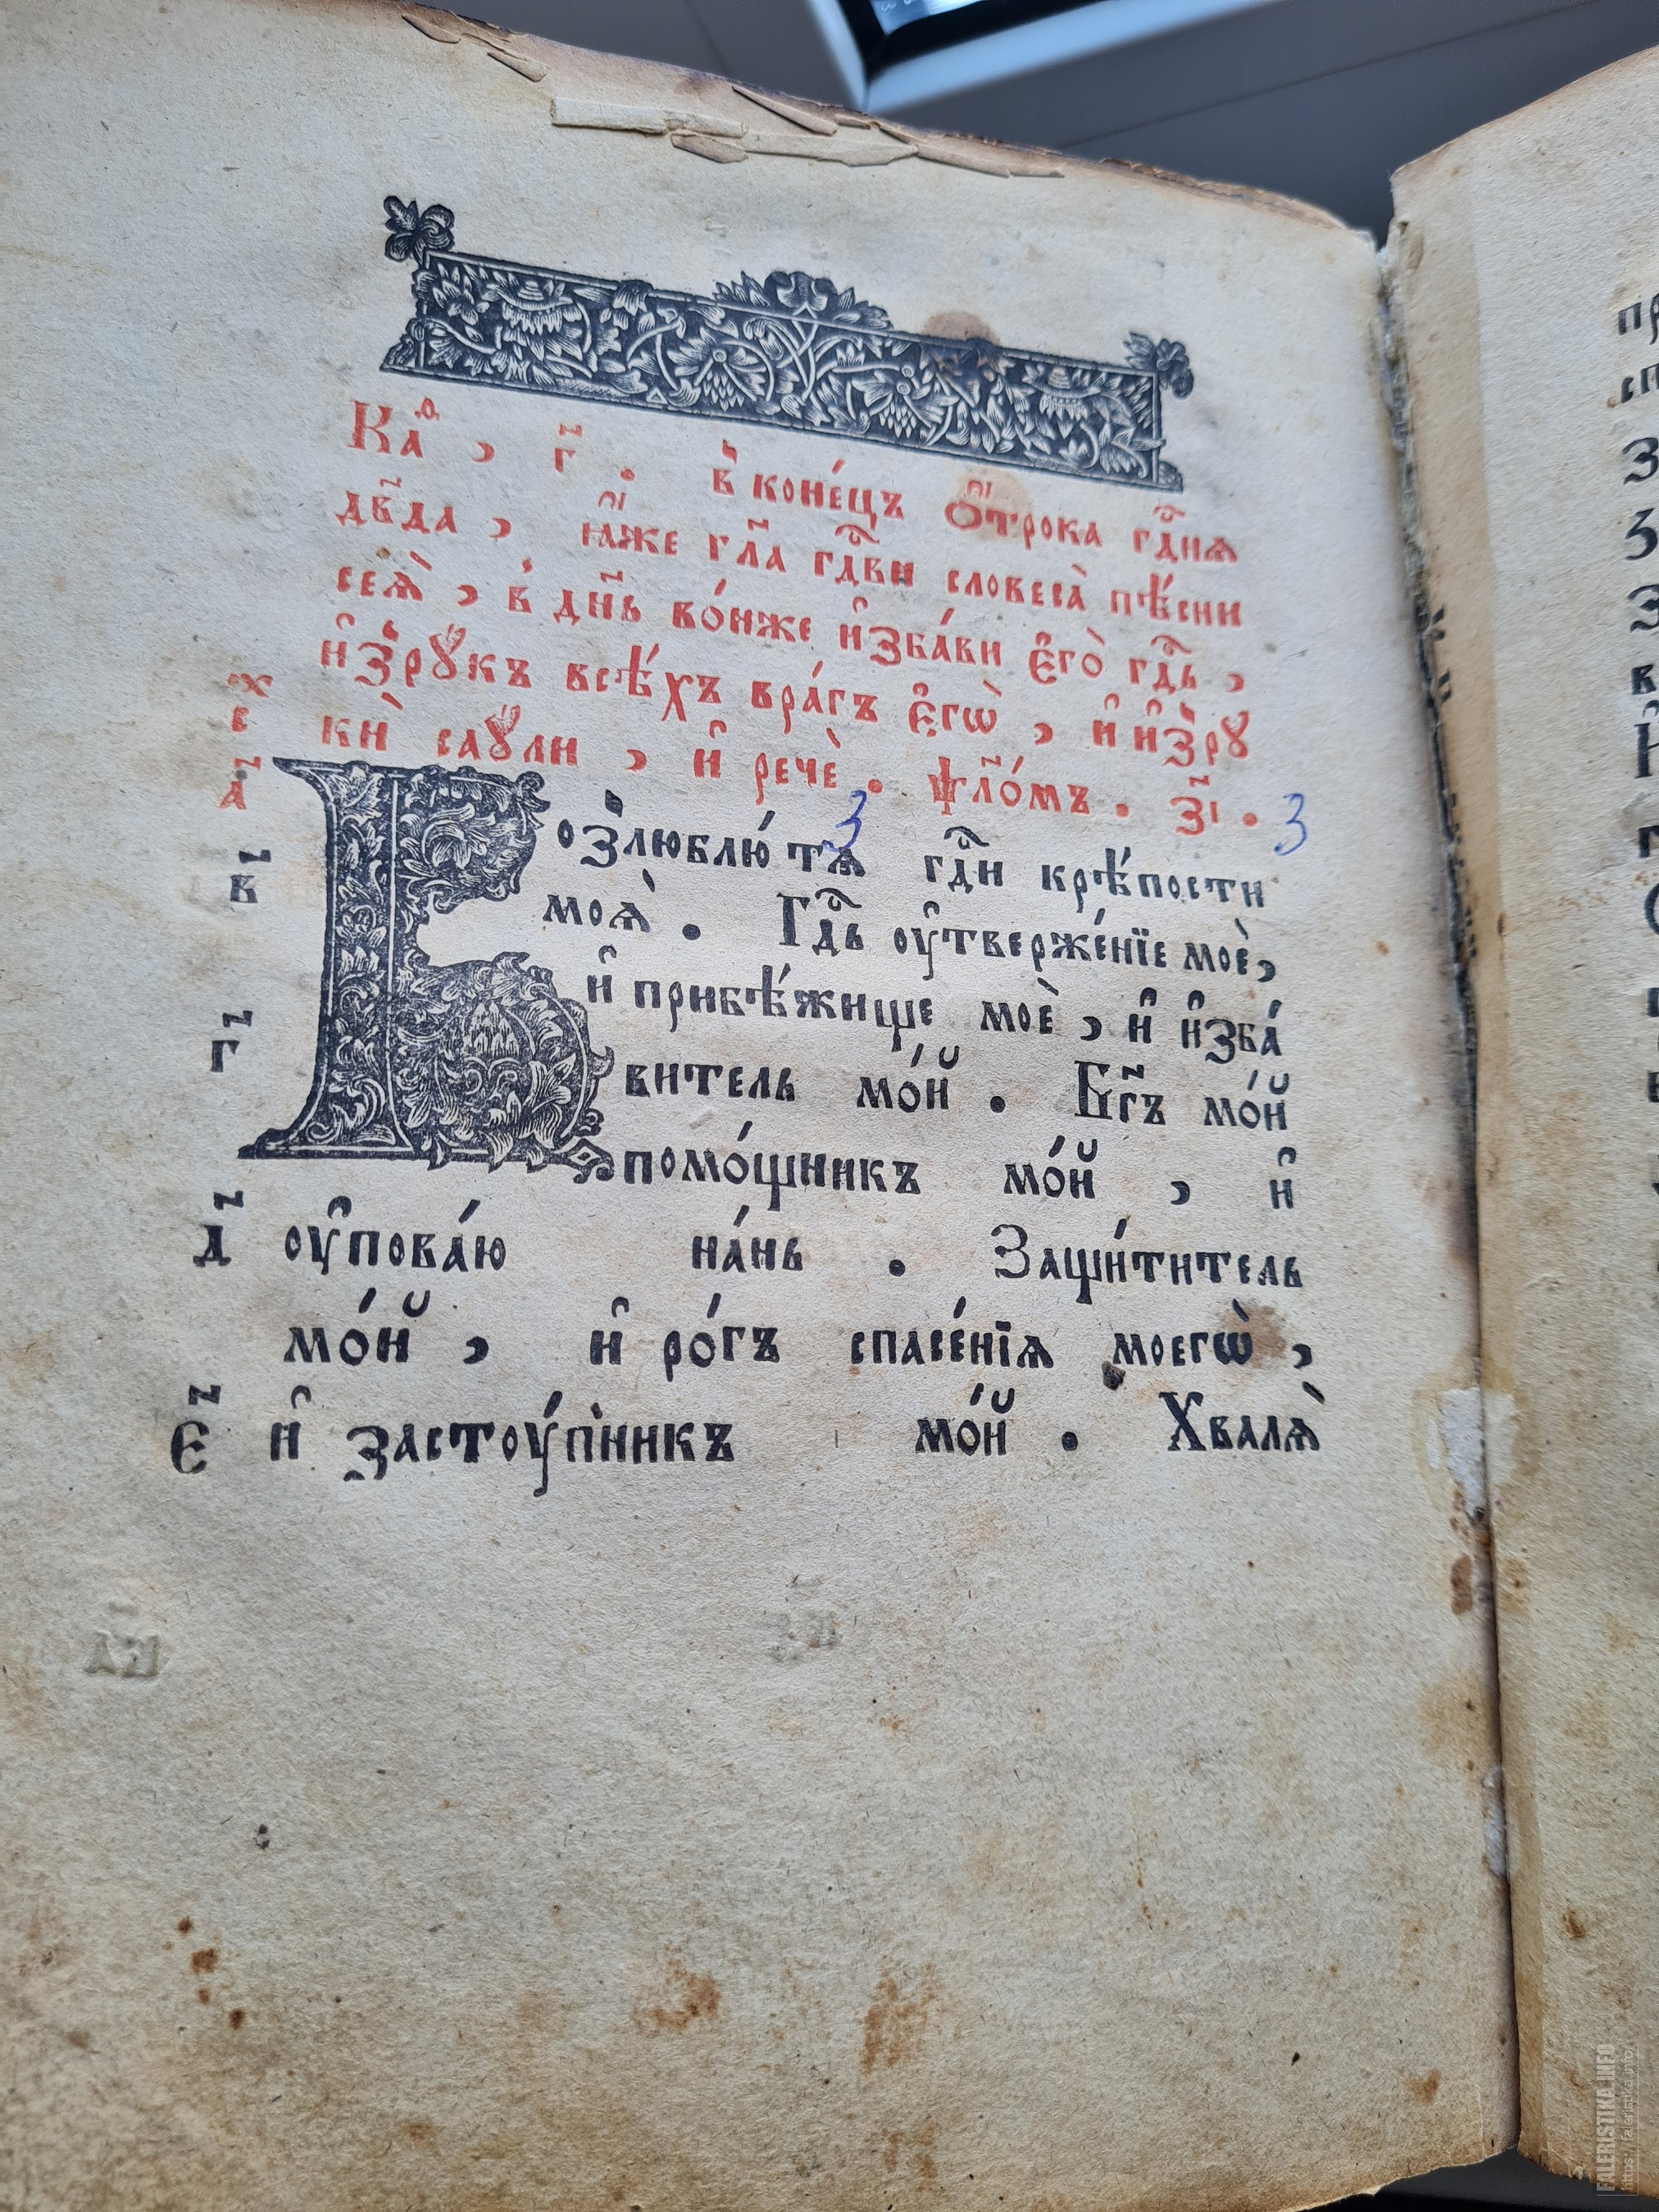 Каѳ , г҃ . в̾ коне́цъ ѻ҆́трока гдⷭ҇нѧ
дв҃да , ꙗ҆́же гл҃а гдⷭ҇ви словеса̀ пѣ́сни
сеѧ̀ , в̾ дн҃ь во́ньже и҆зба́ви є҆го̀ гдⷭ҇ь ,
и҆з̾рꙋ́къ всѣ́хъ вра́гъ є҆гѡ̀ , и҆ и҆з̾рꙋ
кѝ саꙋ́ли , и҆ речѐ . ѱл҃о́мъ . з҃і . 3
сⷯ
а҃
Воз̾люблю́ тѧ 3 гдⷭ҇и крѣ́пости
в҃
моѧ̀ . Гдⷭ҇ь ѹ҆тверже́нїе моѐ ,
и҆ прибѣ́жище моѐ , и҆ и҆зба́
г҃
витель мо́й . Бг҃ъ мо́й
помо́щникъ мо́й , и҆
д҃ ѹ҆пова́ю на́нь . Защи́титель
мо́й , и҆ ро́гъ спасе́нїѧ моегѡ̀ ,
є҃ и҆ застѹ́п̾никъ мо́й . Хвалѧ̀
FALERISTIKA.INFO
https://faleristika.info/